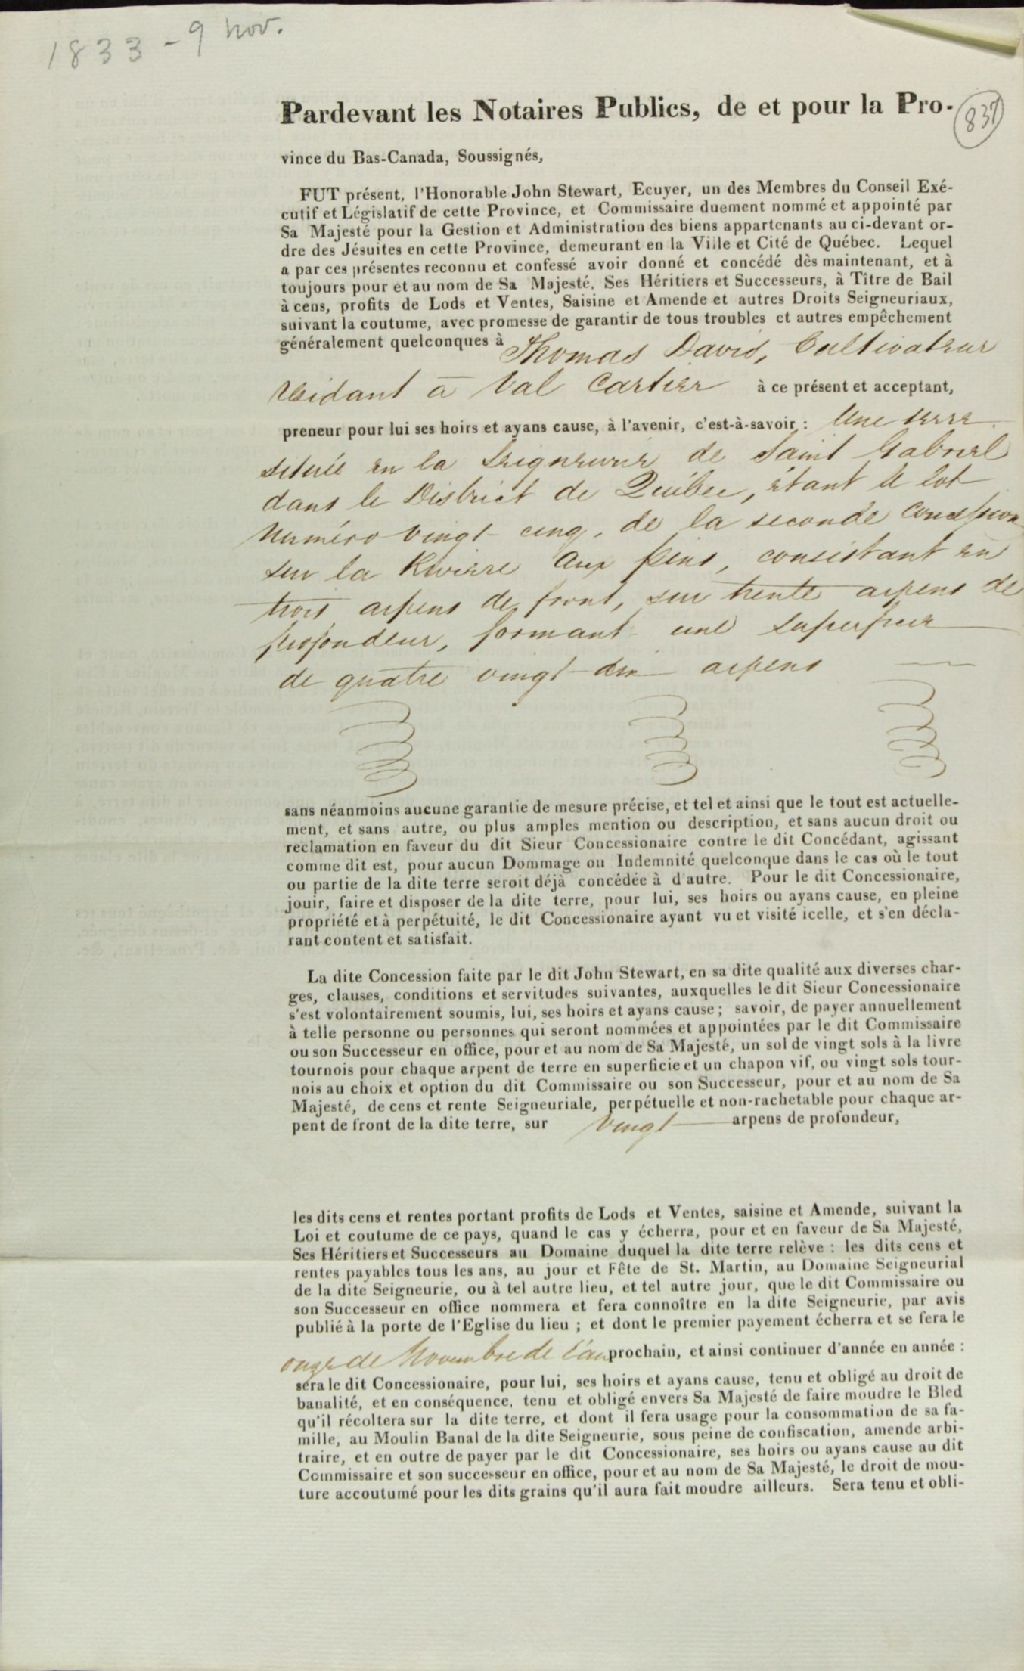 1833 - 9 nov.
837
Pardevant les Notaires Publics, de et pour la Pro-
vince du Bas-Canada, Soussignés,
FUT présent, l'Honorable John Stewart, Ecuyer, un des Membres du Conseil Exé-
cutif et Législatif de cette Province, et Commissaire duement nommé et appointé par
Sa Majesté pour la Gestion et Administration des biens appartenants au ci-devant or-
dre des Jésuites en cette Province, demeurant en la Ville et Cité de Québec. Lequel
a par ces présentes reconnu et confessé avoir donné et concédé dès maintenant, et à
toujours pour et au nom de Sa Majesté, Ses Héritiers et Successeurs, à Titre de Bail
à cens, profits de Lods et Ventes, Saisine et Amende et autres Droits Seigneuriaux,
suivant la coutume, avec promesse de garantir de tous troubles et autres empêchement
généralement quelconques à Thomas Davis, Cultivateur
résidant à Val Cartier à ce présent et acceptant,
preneur pour lui ses hoirs et ayans cause, à l'avenir, c'est-à-savoir : Une terre
située en la Seigneurie de Saint Gabriel
dans le District de Québec, étant le lot
Numéro vingt cinq, de la seconde Concession
sur la Rivière Aux pins, consistant en
trois arpens de front, sur trente arpens de
profondeur, formant une superficie
de quatre vingt dix arpens
sans néanmoins aucune garantie de mesure précise, et tel et ainsi que le tout est actuelle-
ment, et sans autre, ou plus amples mention ou description, et sans aucun droit ou
reclamation en faveur du dit Sieur Concessionaire contre le dit Concédant, agissant
comme dit est, pour aucun Dommage ou Indemnité quelconque dans le cas où le tout
ou partie de la dite terre seroit déjà concédée à d'autre. Pour le dit Concessionaire,
jouir, faire et disposer de la dite terre, pour lui, ses hoirs ou ayans cause, en pleine
propriété et à perpétuité, le dit Concessionaire ayant vu et visité icelle, et s'en décla-
rant content et satisfait.
La dite Concession faite par le dit John Stewart, en sa dite qualité aux diverses char-
ges, clauses, conditions et servitudes suivantes, auxquelles le dit Sieur Concessionaire
s'est volontairement soumis, lui, ses hoirs et ayans cause ; savoir, de payer annuellement
à telle personne ou personnes qui seront nommées et appointées par le dit Commissaire
ou son Successeur en office, pour et au nom de Sa Majesté, un sol de vingt sols à la livre
tournois pour chaque arpent de terre en superficie et un chapon vif, ou vingt sols tour-
nois au choix et option du dit Commissaire ou son Successeur, pour et au nom de Sa
Majesté, de cens et rente Seigneuriale, perpétuelle et non-rachetable pour chaque ar-
pent de front de la dite terre, sur vingt arpens de profondeur,
les dits cens et rentes portant profits de Lods et Ventes, saisine et Amende, suivant la
Loi et coutume de ce pays, quand le cas y écherra, pour et en faveur de Sa Majesté,
Ses Héritiers et Successeurs au Domaine duquel la dite terre relève : les dits cens et
rentes payables tous les ans, au jour et Fête de St. Martin, au Domaine Seigneurial
de la dite Seigneurie, ou à tel autre lieu, et tel autre jour, que le dit Commissaire ou
son Successeur en office nommera et fera connoître en la dite Seigneurie, par avis
publié à la porte de l'Eglise du lieu ; et dont le premier payement écherra et se fera le
onze de Novembre de l'an prochain, et ainsi continuer d'année en année :
sera le dit Concessionaire, pour lui, ses hoirs et ayans cause, tenu et obligé au droit de
banalité, et en conséquence, tenu et obligé envers Sa Majesté de faire moudre le Bled
qu'il récoltera sur la dite terre, et dont il fera usage pour la consommation de sa fa-
mille, au Moulin Banal de la dite Seigneurie, sous peine de confiscation, amende arbi-
traire, et en outre de payer par le dit Concessionaire, ses hoirs ou ayans cause au dit
Commissaire et son successeur en office, pour et au nom de Sa Majesté, le droit de mou-
ture accoutumé pour les dits grains qu'il aura fait moudre ailleurs. Sera tenu et obli-